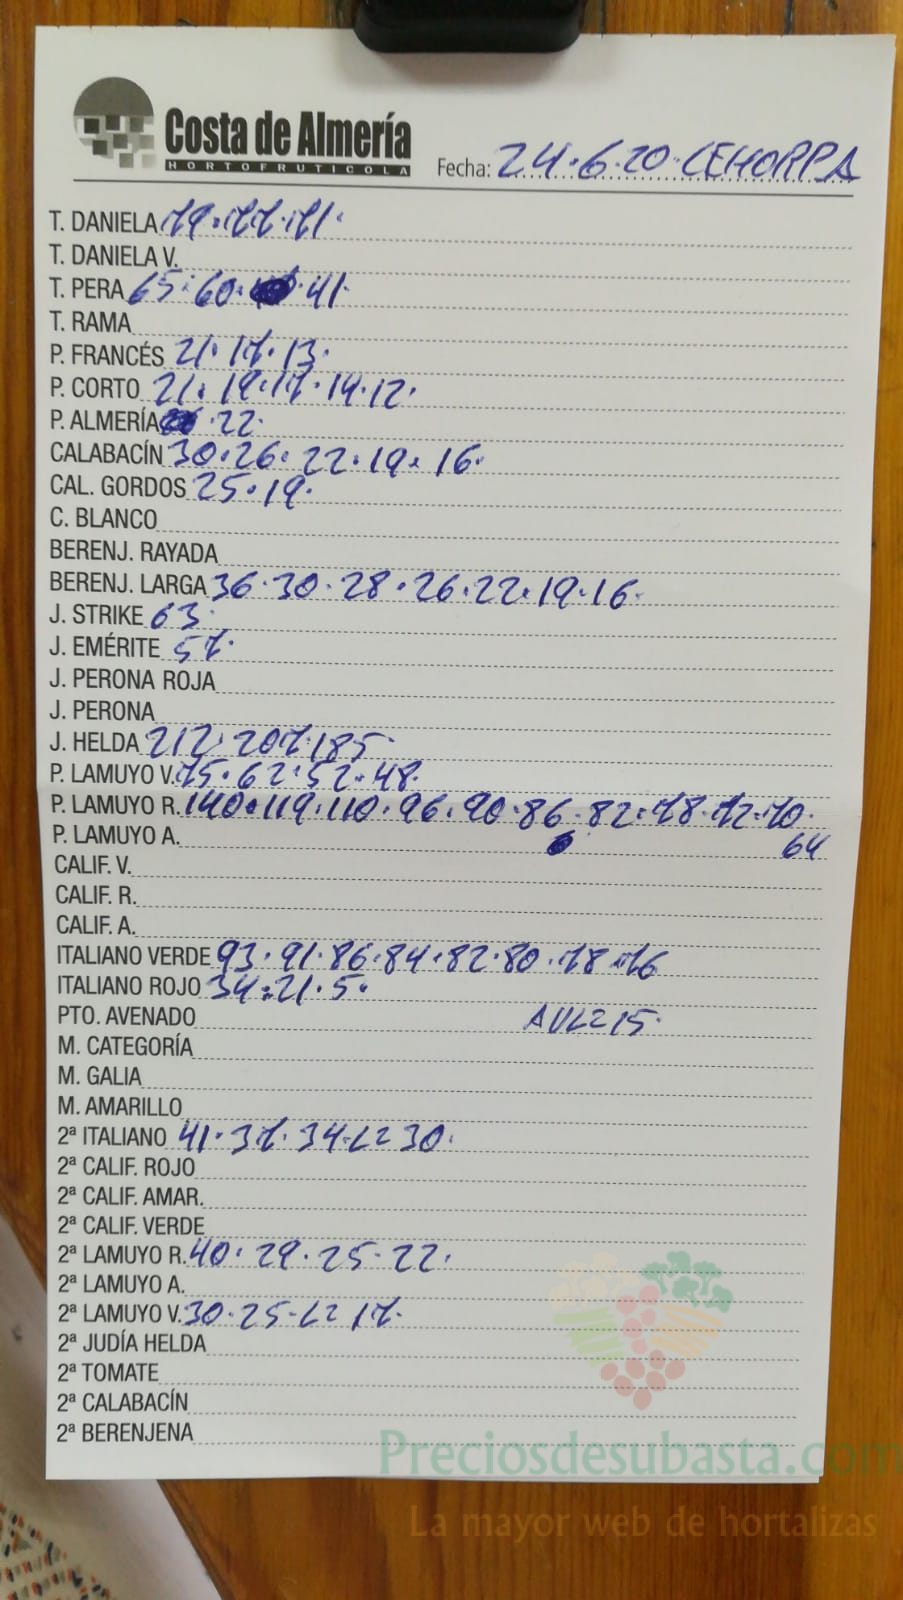 Costa de Almería
HORTOFRUTICOLA
Fecha: 24·6·20·CEHORPA
T. DANIELA 79·77·71·
T. DANIELA V.
T. PERA 65·60· ·41·
T. RAMA
P. FRANCÉS 21·17·13·
P. CORTO 21·19·17·14·12·
P. ALMERÍA ·22·
CALABACÍN 30·26·22·19·16·
CAL. GORDOS 25·19·
C. BLANCO
BERENJ. RAYADA
BERENJ. LARGA 36·30·28·26·22·19·16·
J. STRIKE 63·
J. EMÉRITE 57·
J. PERONA ROJA
J. PERONA
J. HELDA 212·207·185·
P. LAMUYO V. 75·62·52·48·
P. LAMUYO R. 140·119·110·96·90·86·82·78·72·70·
P. LAMUYO A. 64
CALIF. V.
CALIF. R.
CALIF. A.
ITALIANO VERDE 93·91·86·84·82·80·78·76
ITALIANO ROJO 34·21·5·
PTO. AVENADO 215·
M. CATEGORÍA
M. GALIA
M. AMARILLO
2ª ITALIANO 41·37·34·L2 30·
2ª CALIF. ROJO
2ª CALIF. AMAR.
2ª CALIF. VERDE
2ª LAMUYO R. 40·29·25·22·
2ª LAMUYO A.
2ª LAMUYO V. 30·25·L2 17·
2ª JUDÍA HELDA
2ª TOMATE
2ª CALABACÍN
2ª BERENJENA
Preciosdesubasta.com
La mayor web de hortalizas